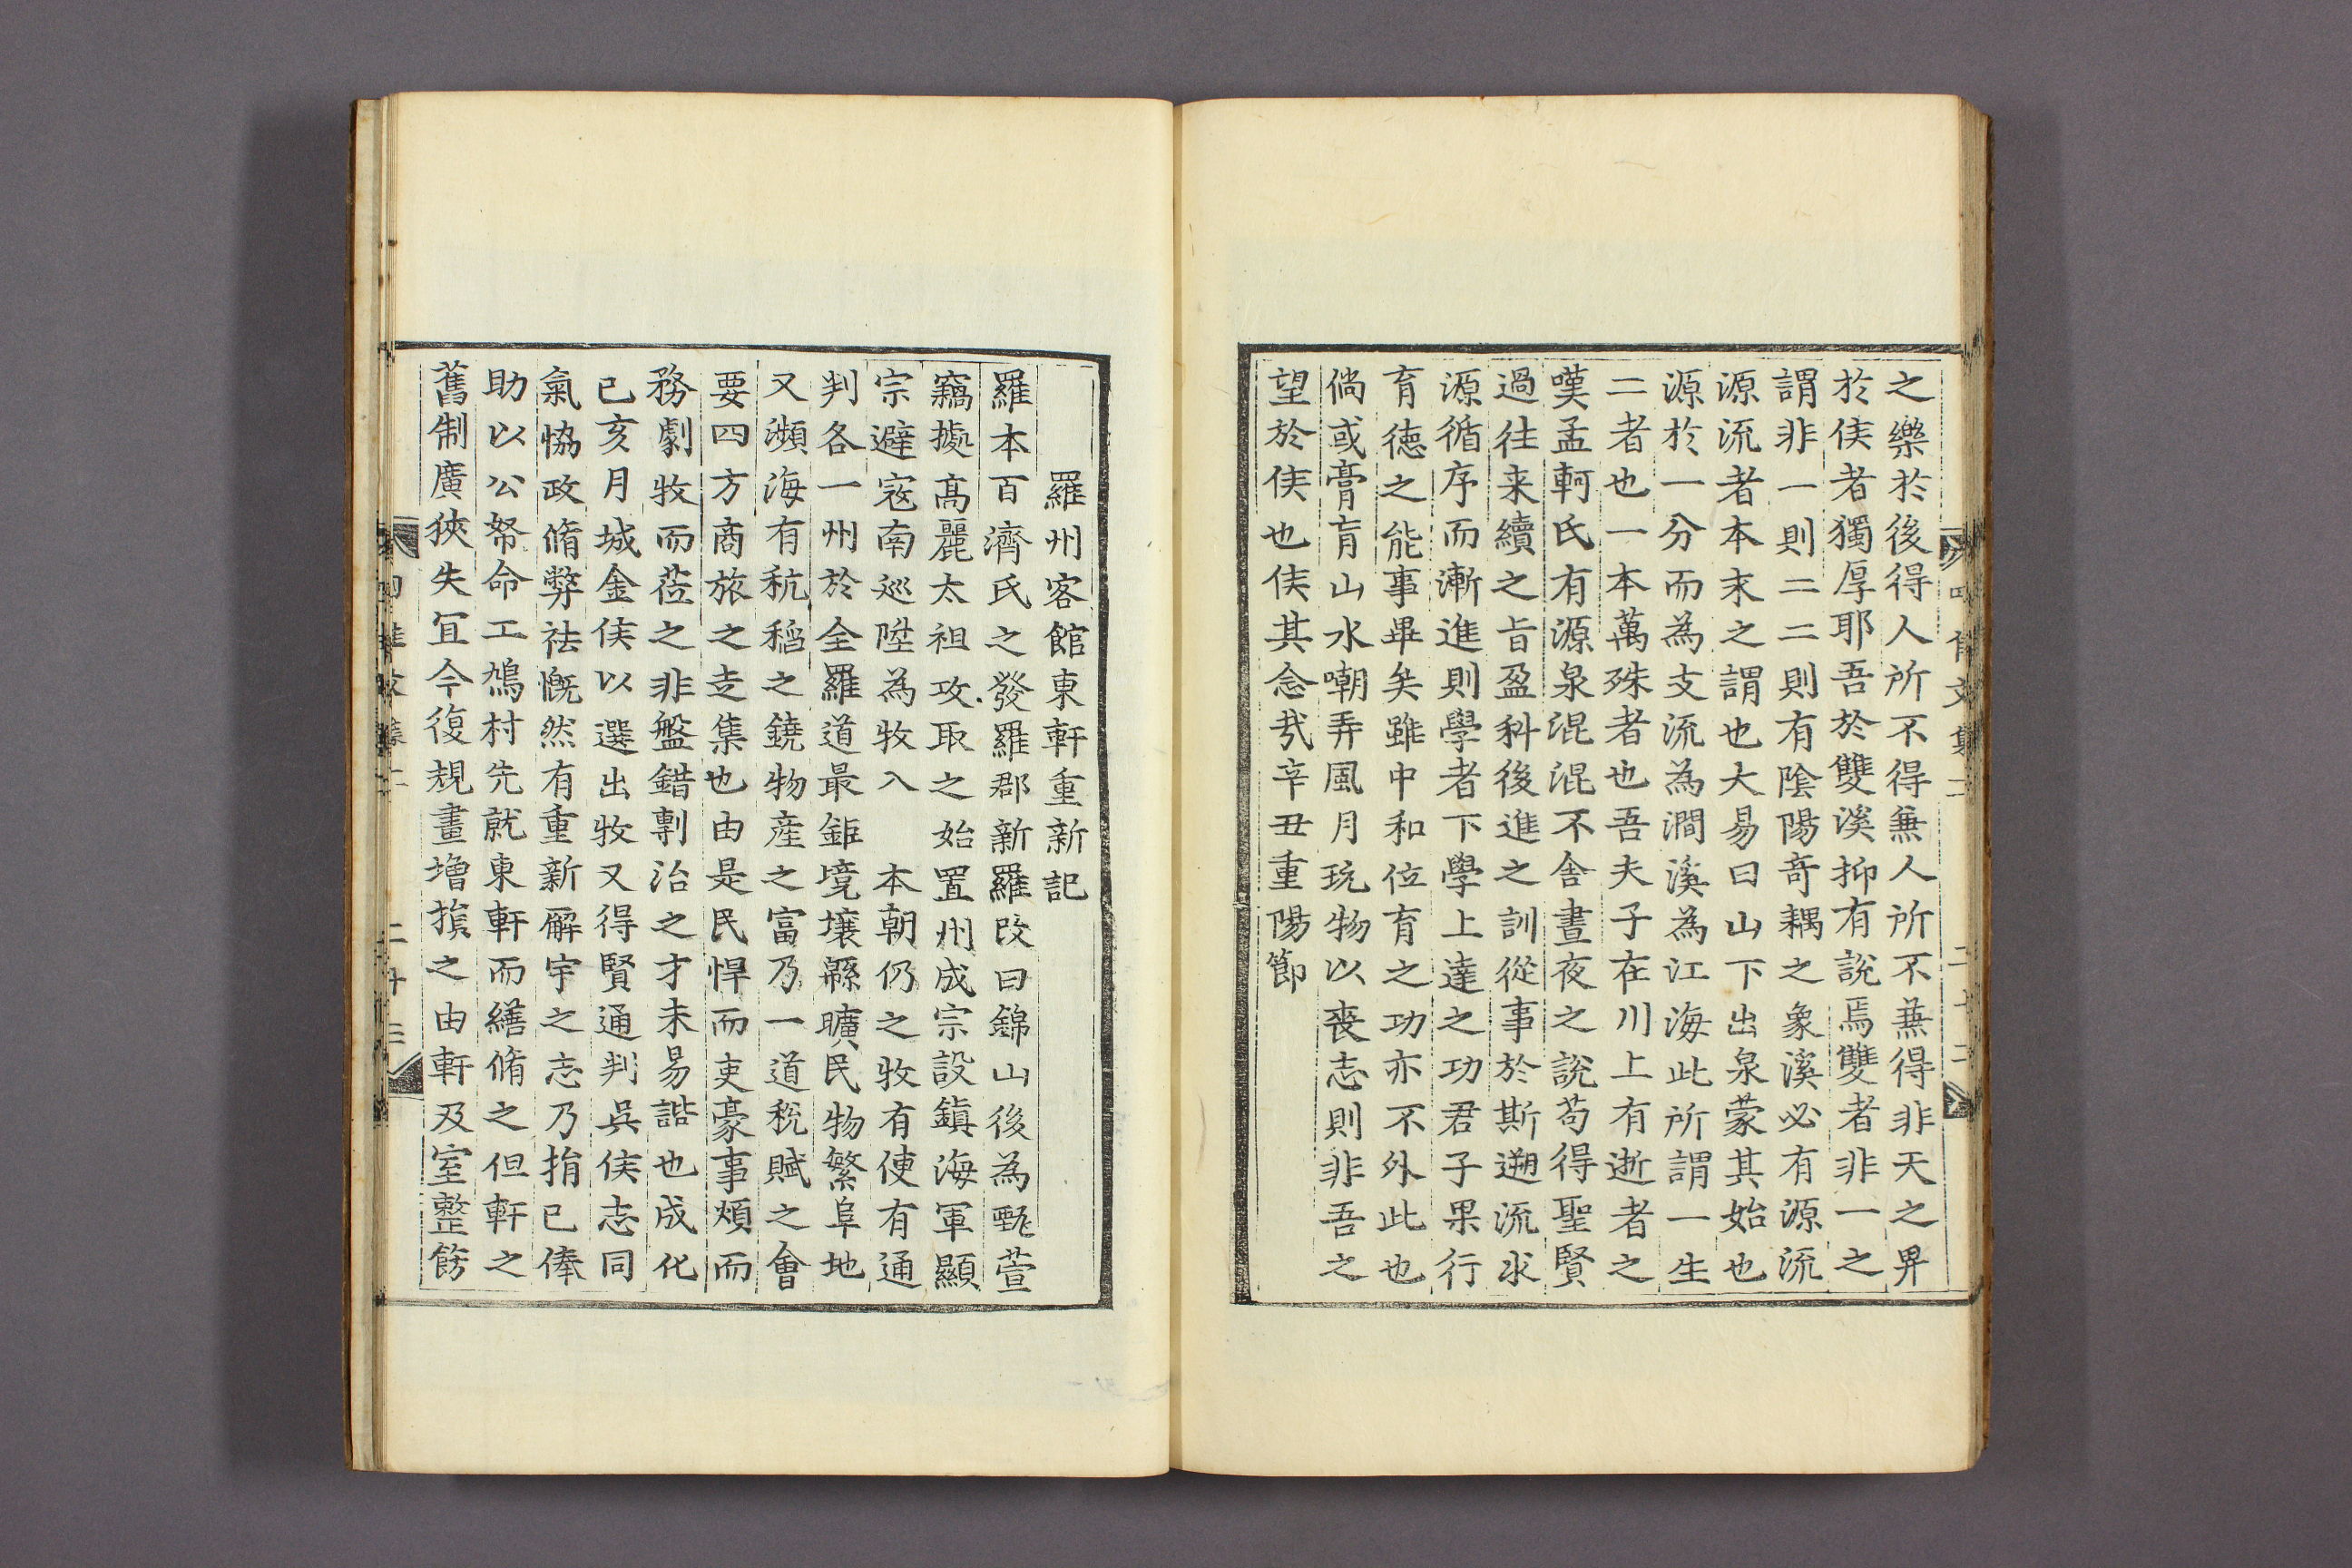 之樂於後得人所不得兼人所不兼得非天之畀
於侯者獨厚耶吾於雙溪抑有說焉雙者非一之
謂非一則二二則有陰陽奇耦之象溪必有源流
源流者本末之謂也大易曰山下出泉蒙其始也
源於一分而為支流為澗溪為江海此所謂一生
二者也一本萬殊者也吾夫子在川上有逝者之
嘆孟軻氏有源泉混混不舍晝夜之說苟得聖賢
過往来續之旨盈科後進之訓從事於斯遡流求
源循序而漸進則學者下學上達之功君子果行
育德之能事畢矣雖中和位育之功亦不外此也
倘或膏肓山水嘲弄風月玩物以喪志則非吾之
望於侯也侯其念㦲辛丑重陽節
羅州客館東軒重新記
羅本百濟氏之發羅郡新羅改曰錦山後為甄萱
竊據高麗太祖攻取之始置州成宗設鎮海軍顯
宗避寇南巡陞為牧入 本朝仍之牧有使有通
判各一州於全羅道最鉅境壤緜曠民物繁阜地
又濒海有秔稻之饒物產之富乃一道稅賦之會
要四方商旅之走集也由是民悍而吏豪事煩而
務劇牧而莅之非盤錯剸治之才未易諧也成化
己亥月城金侯以選出牧又得賢通判呉侯志同
氣恊政脩弊祛慨然有重新廨宇之志乃捐已俸
助以公帑命工鳩村先就東軒而繕脩之但軒之
舊制廣狹失冝今復規畫增損之由軒及室整餝
二十三